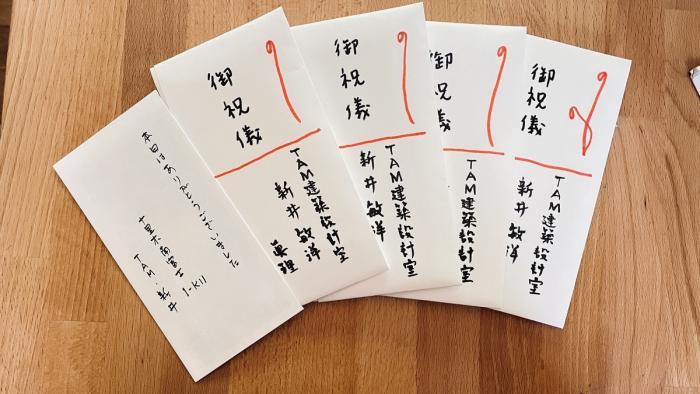 本日はありがとうございました
十里木南富士 I-K11
TAM. 新井
御祝儀
TAM建築設計室
新井 敏洋
眞理
御祝儀
TAM建築設計室
新井 敏洋
御祝儀
TAM建築設計室
御祝儀
TAM建築設計室
新井 敏洋